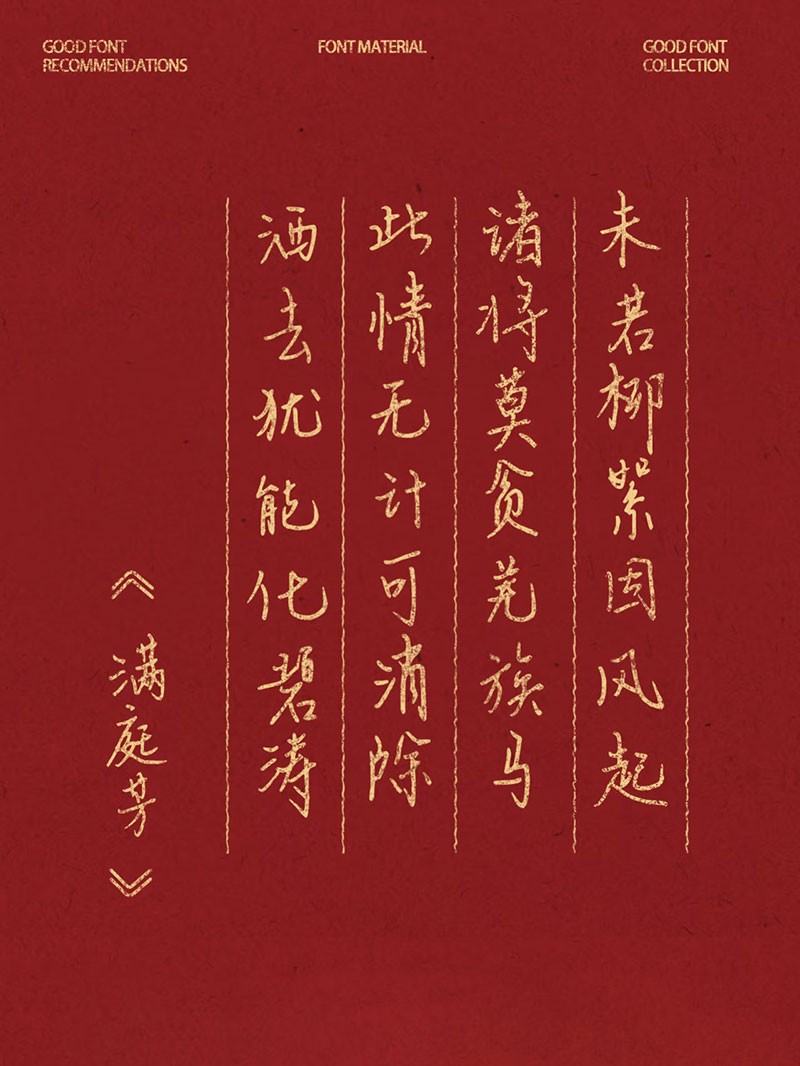 GOOD FONT
RECOMMENDATIONS
FONT MATERIAL
GOOD FONT
COLLECTION
未若柳絮因风起
诸将莫贪羌族马
此情无计可消除
洒去犹能化碧涛
《满庭芳》